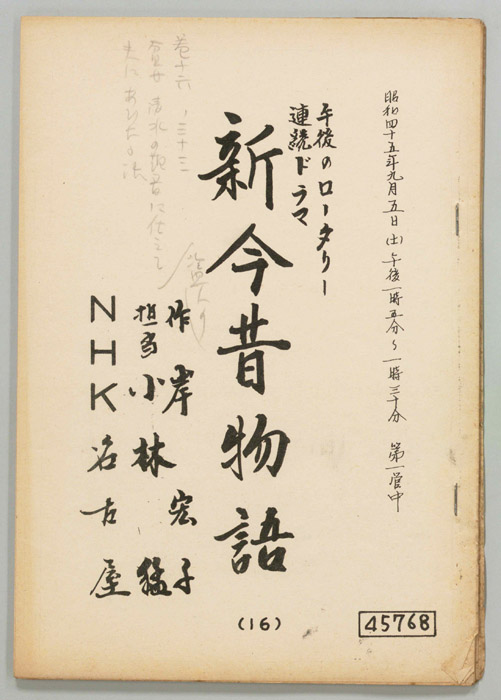 昭和四十五年九月五日(土)午後一時五分〜一時三十分 第一管中
午後のロータリー
連続ドラマ
新今昔物語
作 岸 宏子
担当 小林 猛
NHK名古屋
(16)
45768
巻十六ノ三十三
貧女清水の観音に仕えて
夫にあひたる話